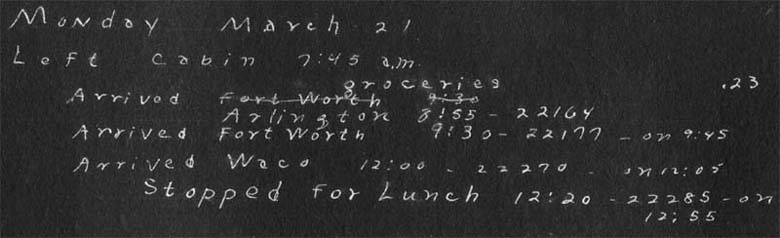 Monday March 21
Left Cabin 7:45 a.m.
groceries .23
Arrived Fort Worth 9:30
Arlington 8:55 - 22164
Arrived Fort Worth 9:30 - 22177 - on 9:45
Arrived Waco 12:00 - 22270 - on 12:05
Stopped For Lunch 12:20 - 22285 - on
12:55